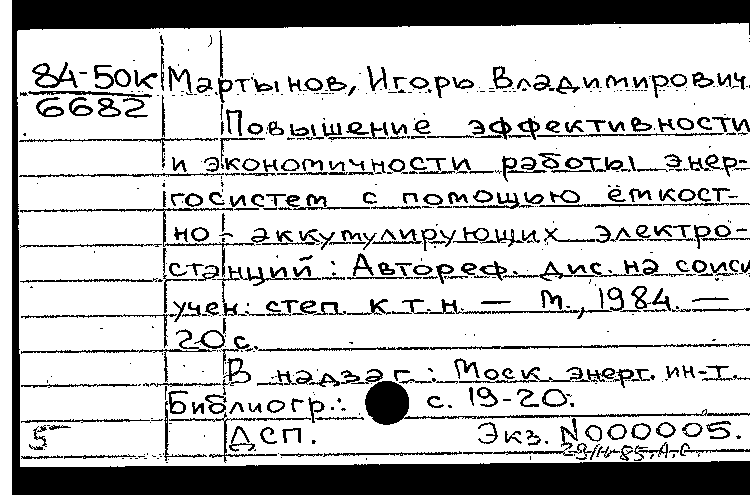 84-50к Мартынов, Игорь Владимирович.
6682
Повышение эффективности
и экономичности работы энер-
госистем с помощью ёмкост-
но-аккумулирующих электро-
станций: Автореф. дис. на соиск
учен. степ. к.т.н. — М., 1984. —
20 с.
В надзаг.: Моск. энерг. ин-т.
Библиогр.: с. 19-20.
5 ДСП. Экз. N000005.